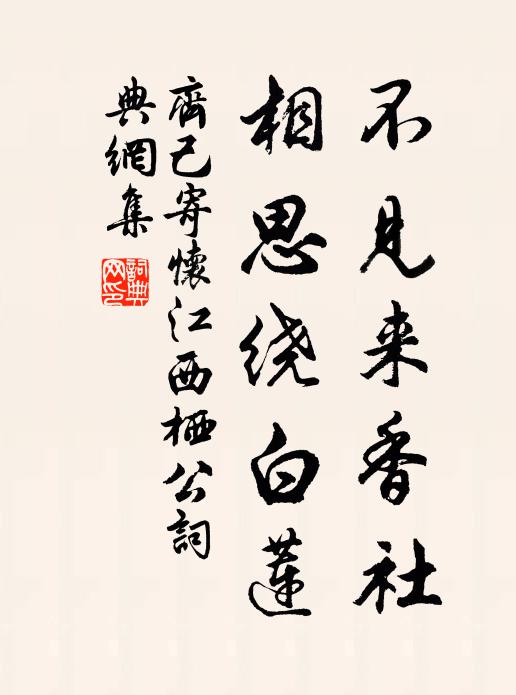 不见来香社
相思绕白莲
齊己寄懷江西栖公詞
典網集
詞典网印